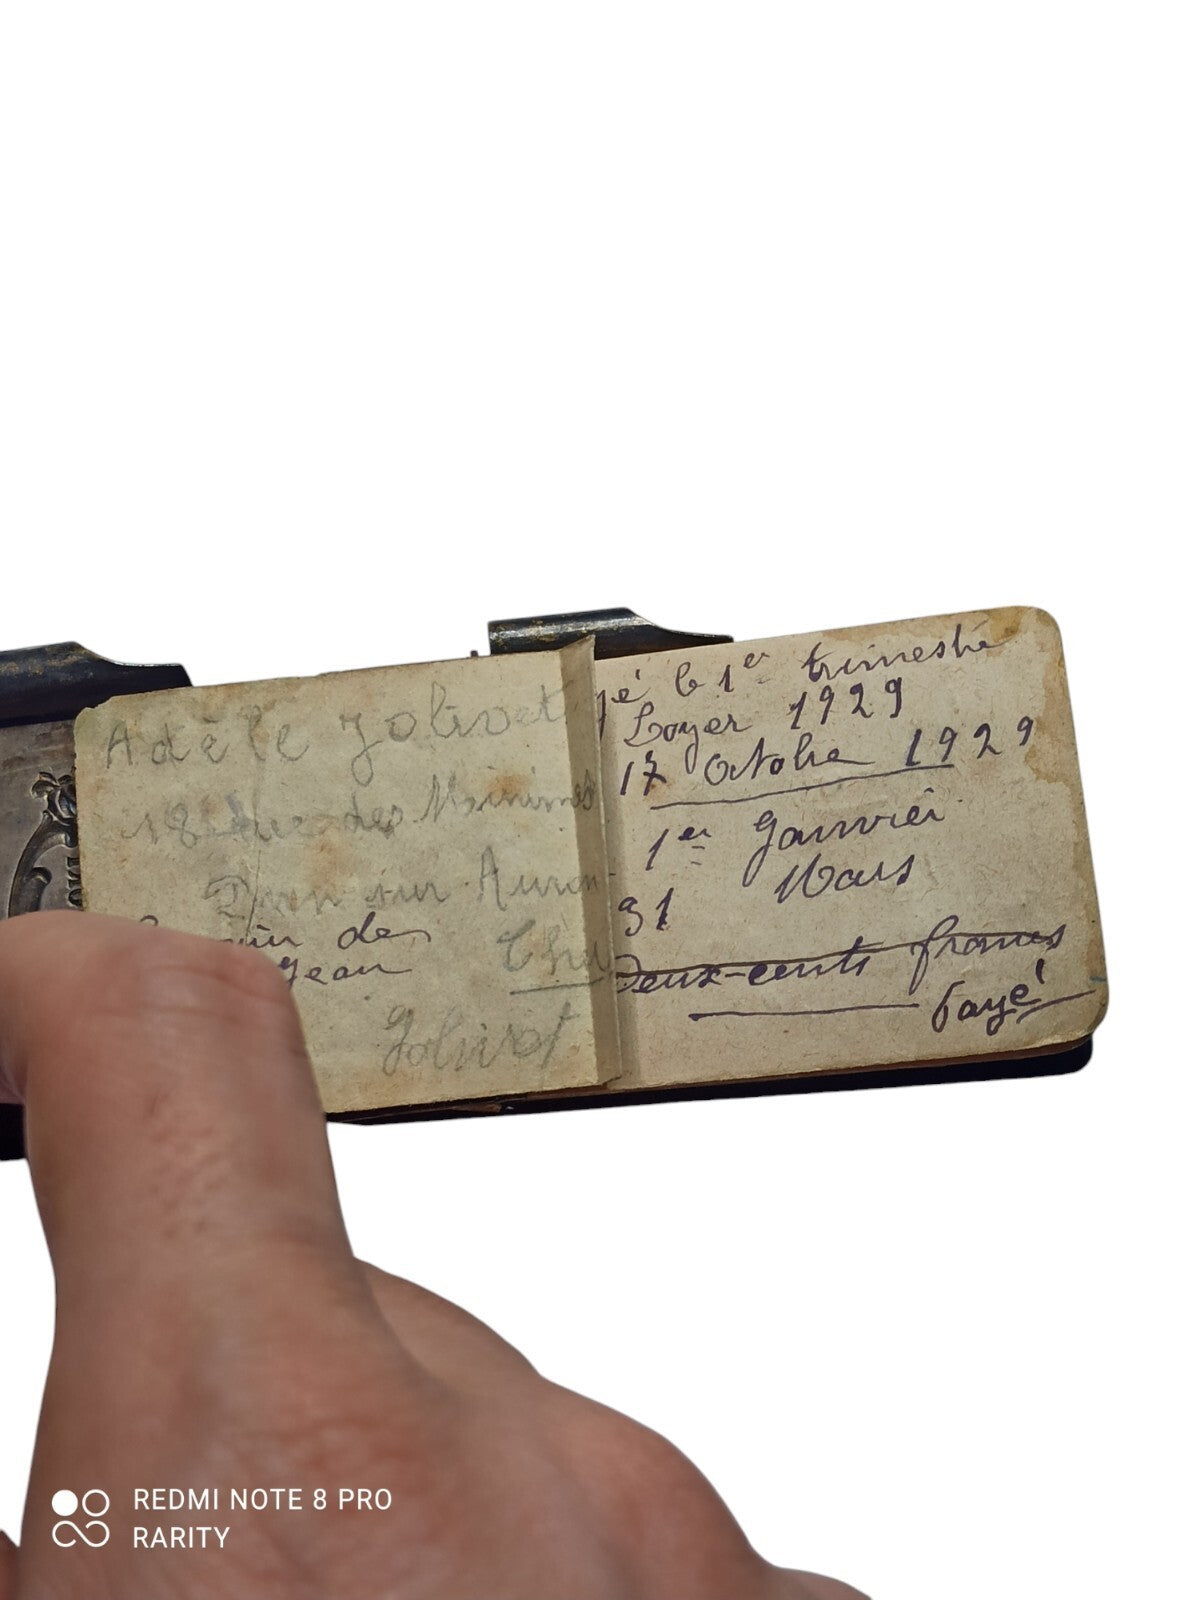 Adèle Jolivet
18 rue des Minimes
Dun sur Auron
Cher
de
Jean
Jolivet
yé le 1er trimestre
Loyer 1929
17 Octobre 1929
1er Janvier
31 Mars
Deux-cents francs
Payé
REDMI NOTE 8 PRO
RARITY